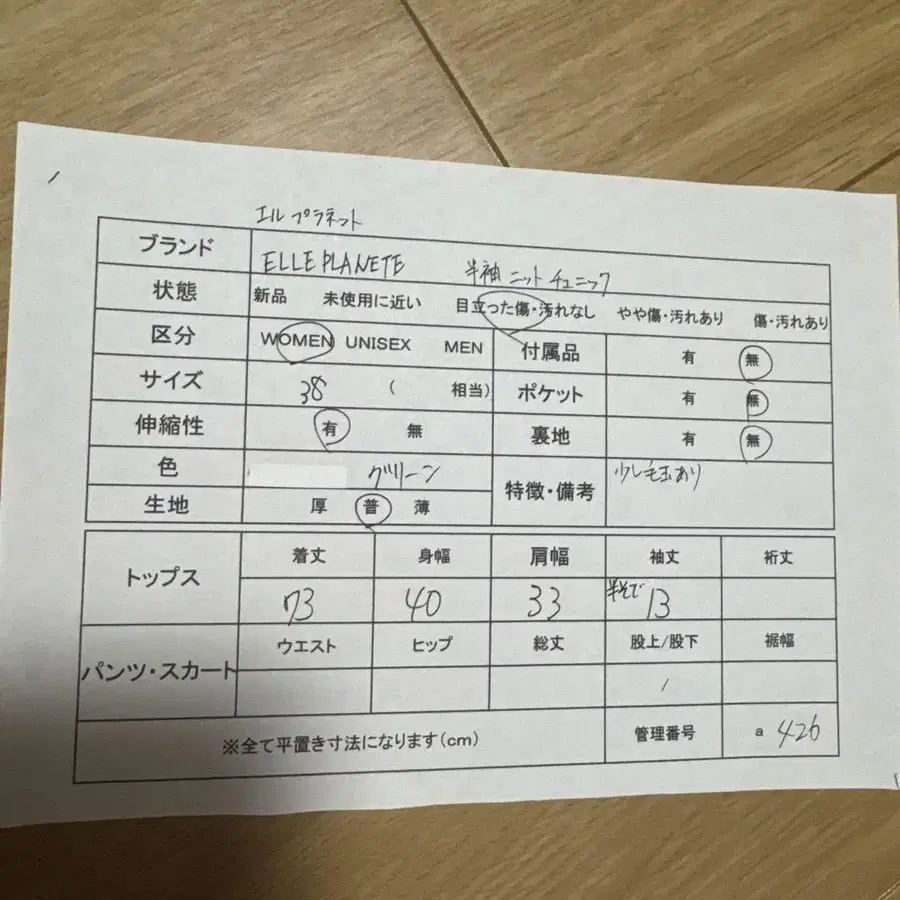 エル プラネット
ブランド ELLE PLANETE 半袖 ニット チュニック
状態 新品 未使用に近い 目立った傷・汚れなし やや傷・汚れあり 傷・汚れあり
区分 WOMEN UNISEX MEN 付属品 有 無
サイズ 38 ( 相当) ポケット 有 無
伸縮性 有 無 裏地 有 無
色 グリーン 特徴・備考 少し毛玉あり
生地 厚 普 薄
トップス 着丈 身幅 肩幅 袖丈 裄丈
73 40 33 半そで 13
パンツ・スカート ウエスト ヒップ 総丈 股上/股下 裾幅
/
※全て平置き寸法になります(cm) 管理番号 a 426